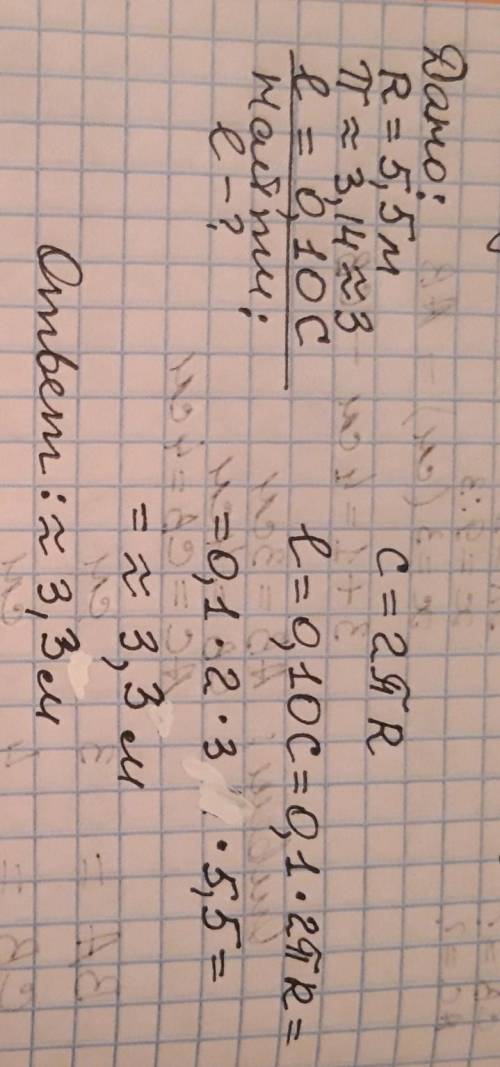 Дано:
R = 5,5 м
π ≈ 3,14 ≈ 3
ℓ = 0,10 C
Найти:
ℓ - ?
C = 2πR
ℓ = 0,10C = 0,1 · 2πR =
= 0,1 · 2 · 3 · 5,5 =
= ≈ 3,3 м
Ответ: ≈ 3,3 м